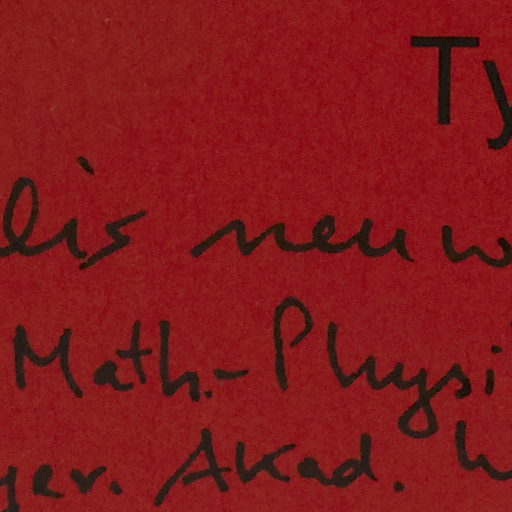 Ty
lis neuw
Math.-Physi
yer. Akad. W